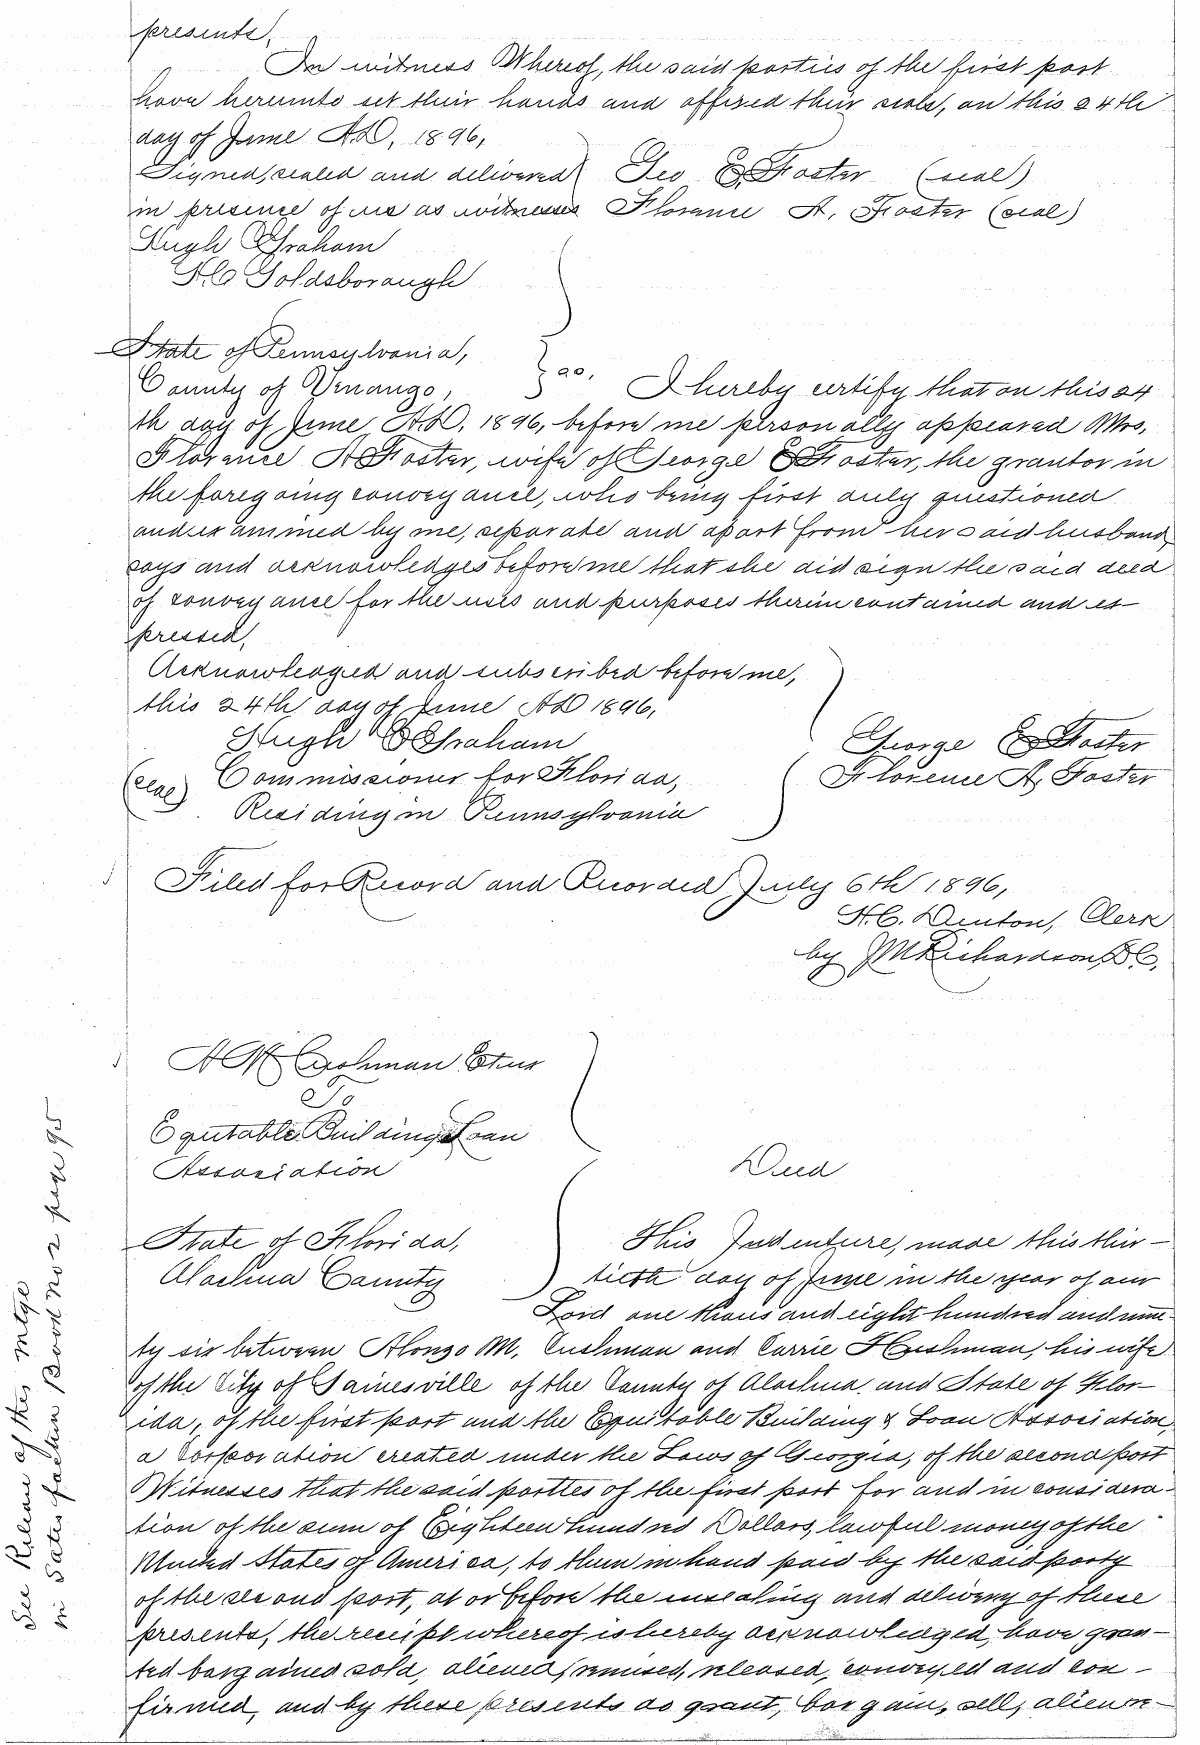 presents,
In witness Whereof, the said parties of the first part
have hereunto set their hands and affixed their seals, on this 24th
day of June A.D, 1896,
Signed, sealed and delivered Geo E. Foster (seal)
in presence of us as witnesses Florence A. Foster (seal)
Hugh Graham
H.C Goldsborough
State of Pennsylvania,
County of Venango, ss. I hereby certify that on this 24
th day of June A.D. 1896, before me personally appeared Mrs,
Florence A Foster, wife of George E Foster, the grantor in
the foregoing conveyance, who being first duly questioned
and examined by me, separate and apart from her said husband,
says and acknowledges before me that she did sign the said deed
of conveyance for the uses and purposes therein contained and ex-
pressed,
Acknowledged and subscribed before me,
this 24th day of June AD 1896,
Hugh C Graham George E Foster
(seal) Commissioner for Florida, Florence A, Foster
Residing in Pennsylvania
Filed for Record and Recorded July 6th 1896,
H.C. Denton, Clerk
by J M Richardson, D.C,
A M Cushman Et ux
To
Equitable Building & Loan
Association Deed
State of Florida, This Indenture, made this thir-
Alachua County tieth day of June in the year of our
Lord one thousand eight hundred and nine-
ty six between Alonzo M. Cushman and Carrie H Cushman, his wife
of the City of Gainesville of the County of Alachua and State of Flor-
ida, of the first part and the Equitable Building & Loan Association,
a Corporation created under the Laws of Georgia, of the second part
Witnesses that the said parties of the first part for and in considera-
tion of the sum of Eighteen hundred Dollars, lawful money of the
United States of America, to them in hand paid by the said party
of the second part, at or before the ensealing and delivery of these
presents, the receipt whereof is hereby acknowledged, have gran-
ted bargained sold, aliened, remised, released, conveyed and con-
firmed, and by these presents do grant, bargain, sell, alien re-
See Release of this mtge
in Satisfaction Book No 2 page 95